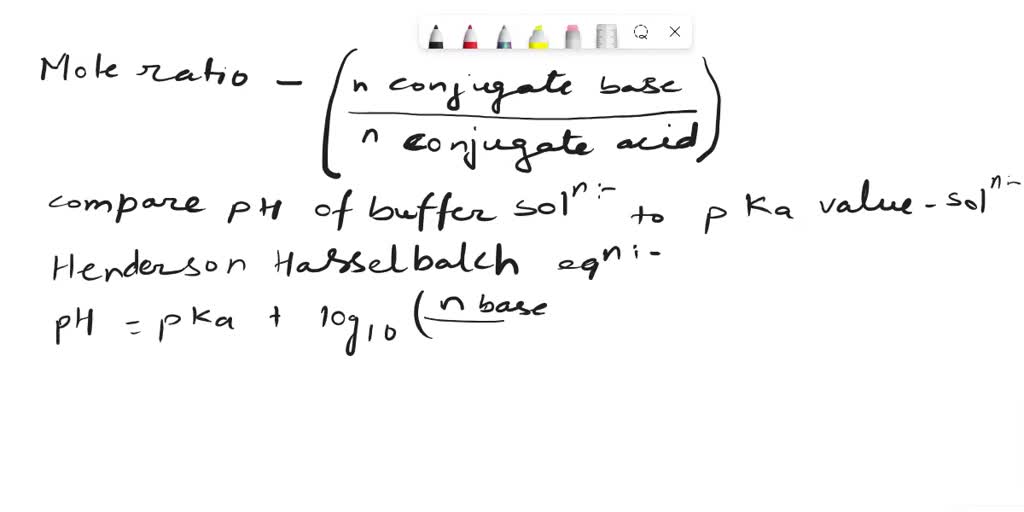 Mole ratio - (n conjugate base
n conjugate acid)
compare pH of buffer solⁿ:- to pKa value - solⁿ:-
Henderson Hasselbalch eqⁿ:-
pH = pKa + log₁₀ (n base